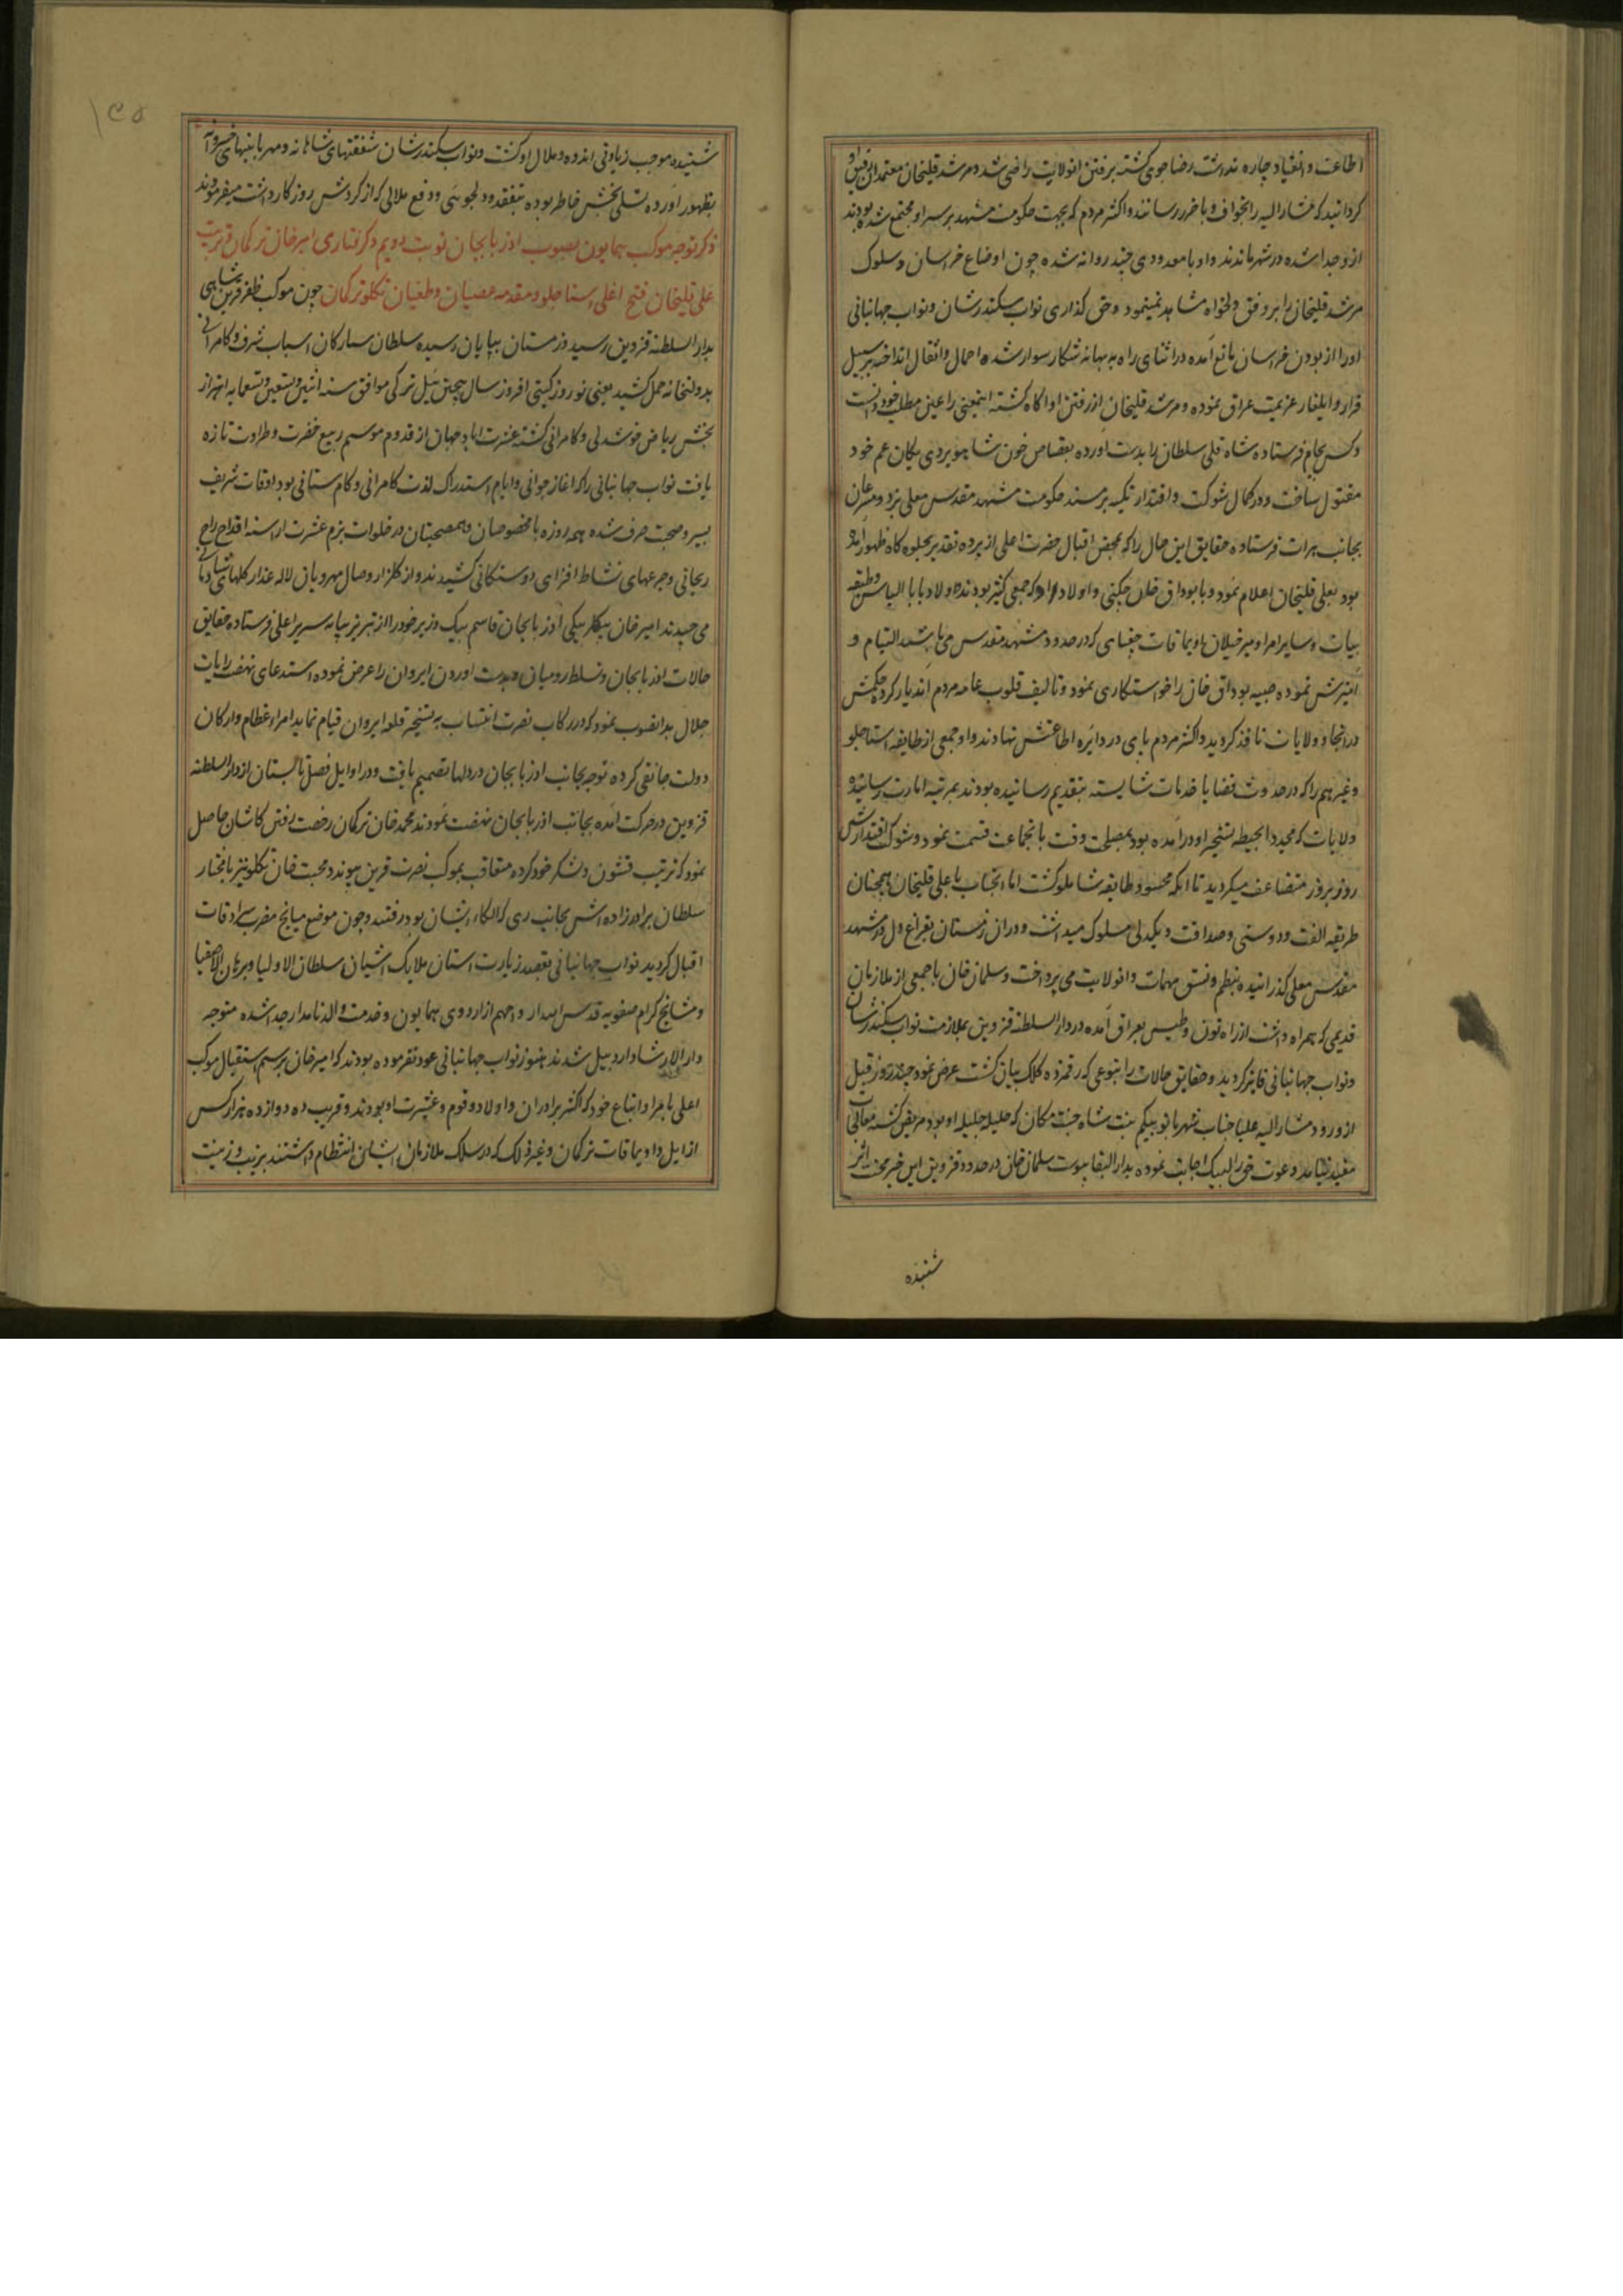 اطاعت و انقیاد چاره نداشت رضا جوی گشته برفتن انولایت راضی شد و مرشد قلیخان معتمدان رفیق او
کردانید که مشار الیه را بخواف و باخرز رسانند و اکثر مردم که بجهت حکومت مشهد بر سر او مجتمع شده بودند
ازو جدا شده در شهر ماندند و او با معدودی چند روانه شده چون اوضاع خراسان و سلوک
مرشد قلیخان را بر وفق دلخواه مشاهد نمینمود و حق کذاری نواب سکندر شان و نواب جهانبانی
او را از بودن خراسان مانع آمده در اثنای راه به بهانه شکار سوار شده احمال و اثقال انداخته بر سبیل
فرار و ایلغار عزیمت عراق نموده و مرشد قلیخان از رفتن او آکاه کشته اینمعنی را عین مطلب خود دانست
و کس بجام فرستاده شاه قلی سلطان را بدست اورده بقصاص خون شاهویردی یکان عم خود
مقتول ساخت و در کمال شوکت و اقتدار تکیه بر مسند حکومت مشهد مقدس معلی زد و مسرعان
بجانب هرات فرستاده حقایق این حال را که بمحض اقبال حضرت اعلی از پرده تقدیر بجلوه کاه ظهور آمده
بود بعلی قلیخان اعلام نمود و با بوداق خان چکنی و اولاد او که جمعی کثیر بودند و اولاد بابا الیاس و طبقه
بیات و سایر امرا و میر خیلان اویماقات جغتای که در حدود مشهد مقدس می باشند التیام و
امیزش نموده صبیه بوداق خان را خواستکاری نمود و تالیف قلوب عامه مردم اندیار کرده حکمش
در انجا و ولایات نافذ کردید و اکثر مردم پای در دایره اطاعتش نهادند و او جمعی از طایفه استاجلو
و غیرهم را که در حدوث قضایا خدمات شایسته بتقدیم رسانیده بودند بمرتبه امارت رسانیده
ولایات که مجددا بحیطه تسخیر او درآمده بود بمصلحت وقت بانجماعت قسمت نمود و شوکت اقتدارش
روز بروز متضاعف میکردید تا آنکه محسود طایفه شاملو کشت اما انجناب با علی قلیخان همچنان
طریقه الفت و دوستی و صداقت و یکدلی مسلوک میداشت و دران زمستان بفراغ دل در مشهد
مقدس معلی کذرانیده بنظم و نسق مهمات و انولایت می پرداخت و سلمان خان با جمعی از ملازمان
قدیمی که همراه داشت از راه تون و طبس بعراق آمده در دار السلطنه قزوین بملازمت نواب سکندر شان
و نواب جهانبانی فایز کردید و حقایق حالات را بنوعی که رقمزده کلک بیان کشت عرض نمود چند روز قبل
از ورود مشار الیه علیا جناب شهربانو بیکم بنت شاه جنت مکان که حلیله جلیله او بود مریض کشته معالجه
مفید نیامد و دعوت حق را لبیک اجابت نموده بدار البقا پیوست سلمان خان در حدود قزوین این خبر محنت اثر
شنیده
۱۳۵
شنیده موجب زیادتی اندوه و ملال او کشت و نواب سکندر شان شفقتهای شاهانه و مهربانیهای خسروانه
بظهور آورده تسلی بخش خاطر بوده بتفقد و دلجوئی و دفع ملالی که از کردش روزکار داشت میفرمودند
ذکر توجه موکب همایون بصوب اذربایجان نوبت دویم و کرفتاری امیر خان ترکمان و تربیت
علی قلیخان فتح اغلی استاجلو و مقدمه عصیان و طغیان تکلو و ترکمان چون موکب ظفر قرین شاهی
بدار السلطنه قزوین رسید و زمستان بپایان رسیده سلطان سیارکان اسباب شرف و کامرانی
بدولتخانه حمل کشید یعنی نوروز کیتی افروز سال پیچین ئیل ترکی موافق سنه اثنین و تسعین و تسعمایه اهتزاز
بخش ریاض خوشدلی و کامرانی کشته عشرت اباد جهان از قدوم موسم ربیع خضرت و طراوت تازه
یافت نواب جهانبانی را که اغاز جوانی و ایام استدراک لذت کامرانی و کام ستانی بود اوقات شریف
بسیر و صحبت صرف شده همه روزه با مخصوصان و همصحبتان در خلوات بزم عشرت اراسته اقداح راح
ریحانی و جرعهای نشاط افزای دوستکانی کشیدند و از کلزار وصال مهرویان لاله عذار کلهای شادمانی
می چیدند امیر خان بیکلربیکی اذربایجان قاسم بیک وزیر خود را از تبریز بپایه سریر اعلی فرستاده حقایق
حالات اذربایجان و تسلط رومیان و بدست اوردن ایروان را عرض نموده استدعای نهضت رایات
جلال بدانصوب نمود که در رکاب نصرت انتساب به تسخیر قلعه ایروان قیام نماید امراء عظام و ارکان
دولت جانقی کرده توجه بجانب اذربایجان در دلها تصمیم یافت و در اوایل فصل تابستان از دار السلطنه
قزوین در حرکت آمده بجانب اذربایجان نهضت نمودند محمد خان ترکمان رخصت رفتن کاشان حاصل
نمود که ترتیب قشون و لشکر خود کرده متعاقب بموکب نصرت قرین پیوندد و محبت خان تکلو نیز با مختار
سلطان برادرزاده اش بجانب ری که الکاء ایشان بود رفتند و چون موضع میانج مضرب سرادقات
اقبال کردید نواب جهانبانی بقصد زیارت استان ملایک اشیان سلطان الاولیا و برهان الاصفیا
و مشایخ کرام صفویه قدس اسرار واحهم از اردوی همایون و خدمت والد نامدار جدا شده متوجه
دار الارشاد اردبیل شدند هنوز نواب جهانبانی عود نفرموده بودند که امیر خان برسم استقبال موکب
اعلی با امرا و اتباع خود که اکثر برادران و اولاد و قوم و عشیرت او بودند و قریب ده دوازده هزار کس
از ایل و اویماقات ترکمان و غیر ذلک که در سلک ملازمان ایشان انتظام داشتند بزیب و زینت